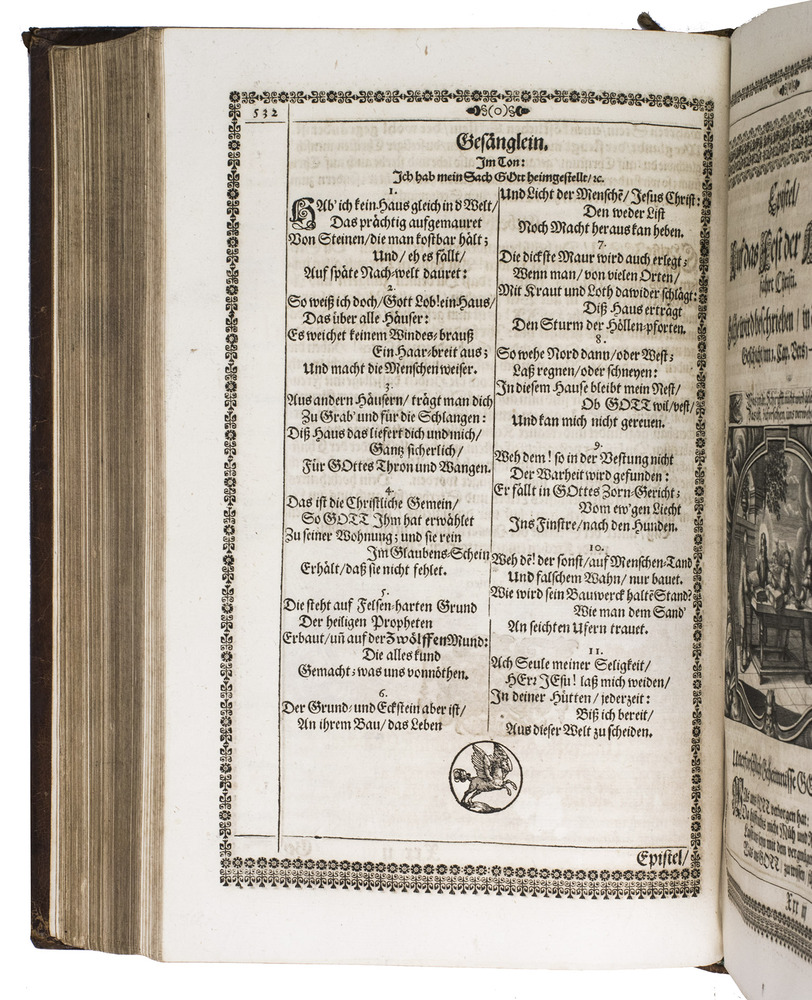 532
(o)
Gesänglein.
Im Ton:
Ich hab mein Sach GOtt heimgestellt/ ꝛc.
1.
HAb' ich kein Haus gleich in d Welt/
Das prächtig aufgemauret
Von Steinen/ die man kostbar hält;
Und/ eh es fällt/
Auf späte Nach-welt dauret:
2.
So weiß ich doch/ Gott Lob! ein Haus/
Das über alle Häuser:
Es weichet keinem Windes-brauß
Ein Haar-breit aus;
Und macht die Menschen weiser.
3.
Aus andern Häusern/ trägt man dich
Zu Grab' und für die Schlangen:
Diß Haus das liefert dich und mich/
Gantz sicherlich/
Für GOttes Thron und Wangen.
4.
Das ist die Christliche Gemein/
So GOTT Ihm hat erwählet
Zu seiner Wohnung; und sie rein
Im Glaubens-Schein
Erhält/ daß sie nicht fehlet.
5.
Die steht auf Felsen-harten Grund
Der heiligen Propheten
Erbaut/ uñ auf der Zwölffen Mund:
Die alles kund
Gemacht; was uns vonnöthen.
6.
Der Grund- und Eckstein aber ist/
An ihrem Bau/ das Leben
Und Licht der Menschẽ/ Jesus Christ:
Den weder List
Noch Macht heraus kan heben.
7.
Die dickste Maur wird auch erlegt;
Wenn man/ von vielen Orten/
Mit Kraut und Loth dawider schlägt:
Diß Haus erträgt
Den Sturm der Höllen-pforten.
8.
So wehe Nord dann/ oder West;
Laß regnen/ oder schneyen:
In diesem Hause bleibt mein Nest/
Ob GOTT wil/ vest/
Und kan mich nicht gereuen.
9.
Weh dem! so in der Vestung nicht
Der Warheit wird gefunden:
Er fällt in GOttes Zorn-Gericht;
Vom ew'gen Liecht
Ins Finstre/ nach den Hunden.
10.
Weh dẽ! der sonst/ auf Menschen-Tand
Und falschem Wahn/ nur bauet.
Wie wird sein Bauwerck haltẽ Stand?
Wie man dem Sand'
An seichten Ufern trauet.
11.
Ach Seule meiner Seligkeit/
HErꝛ JEsu! laß mich weiden/
In deiner Hütten/ jederzeit:
Biß ich bereit/
Aus dieser Welt zu scheiden.
Epistel/
Epistel/
Auf das Fest der